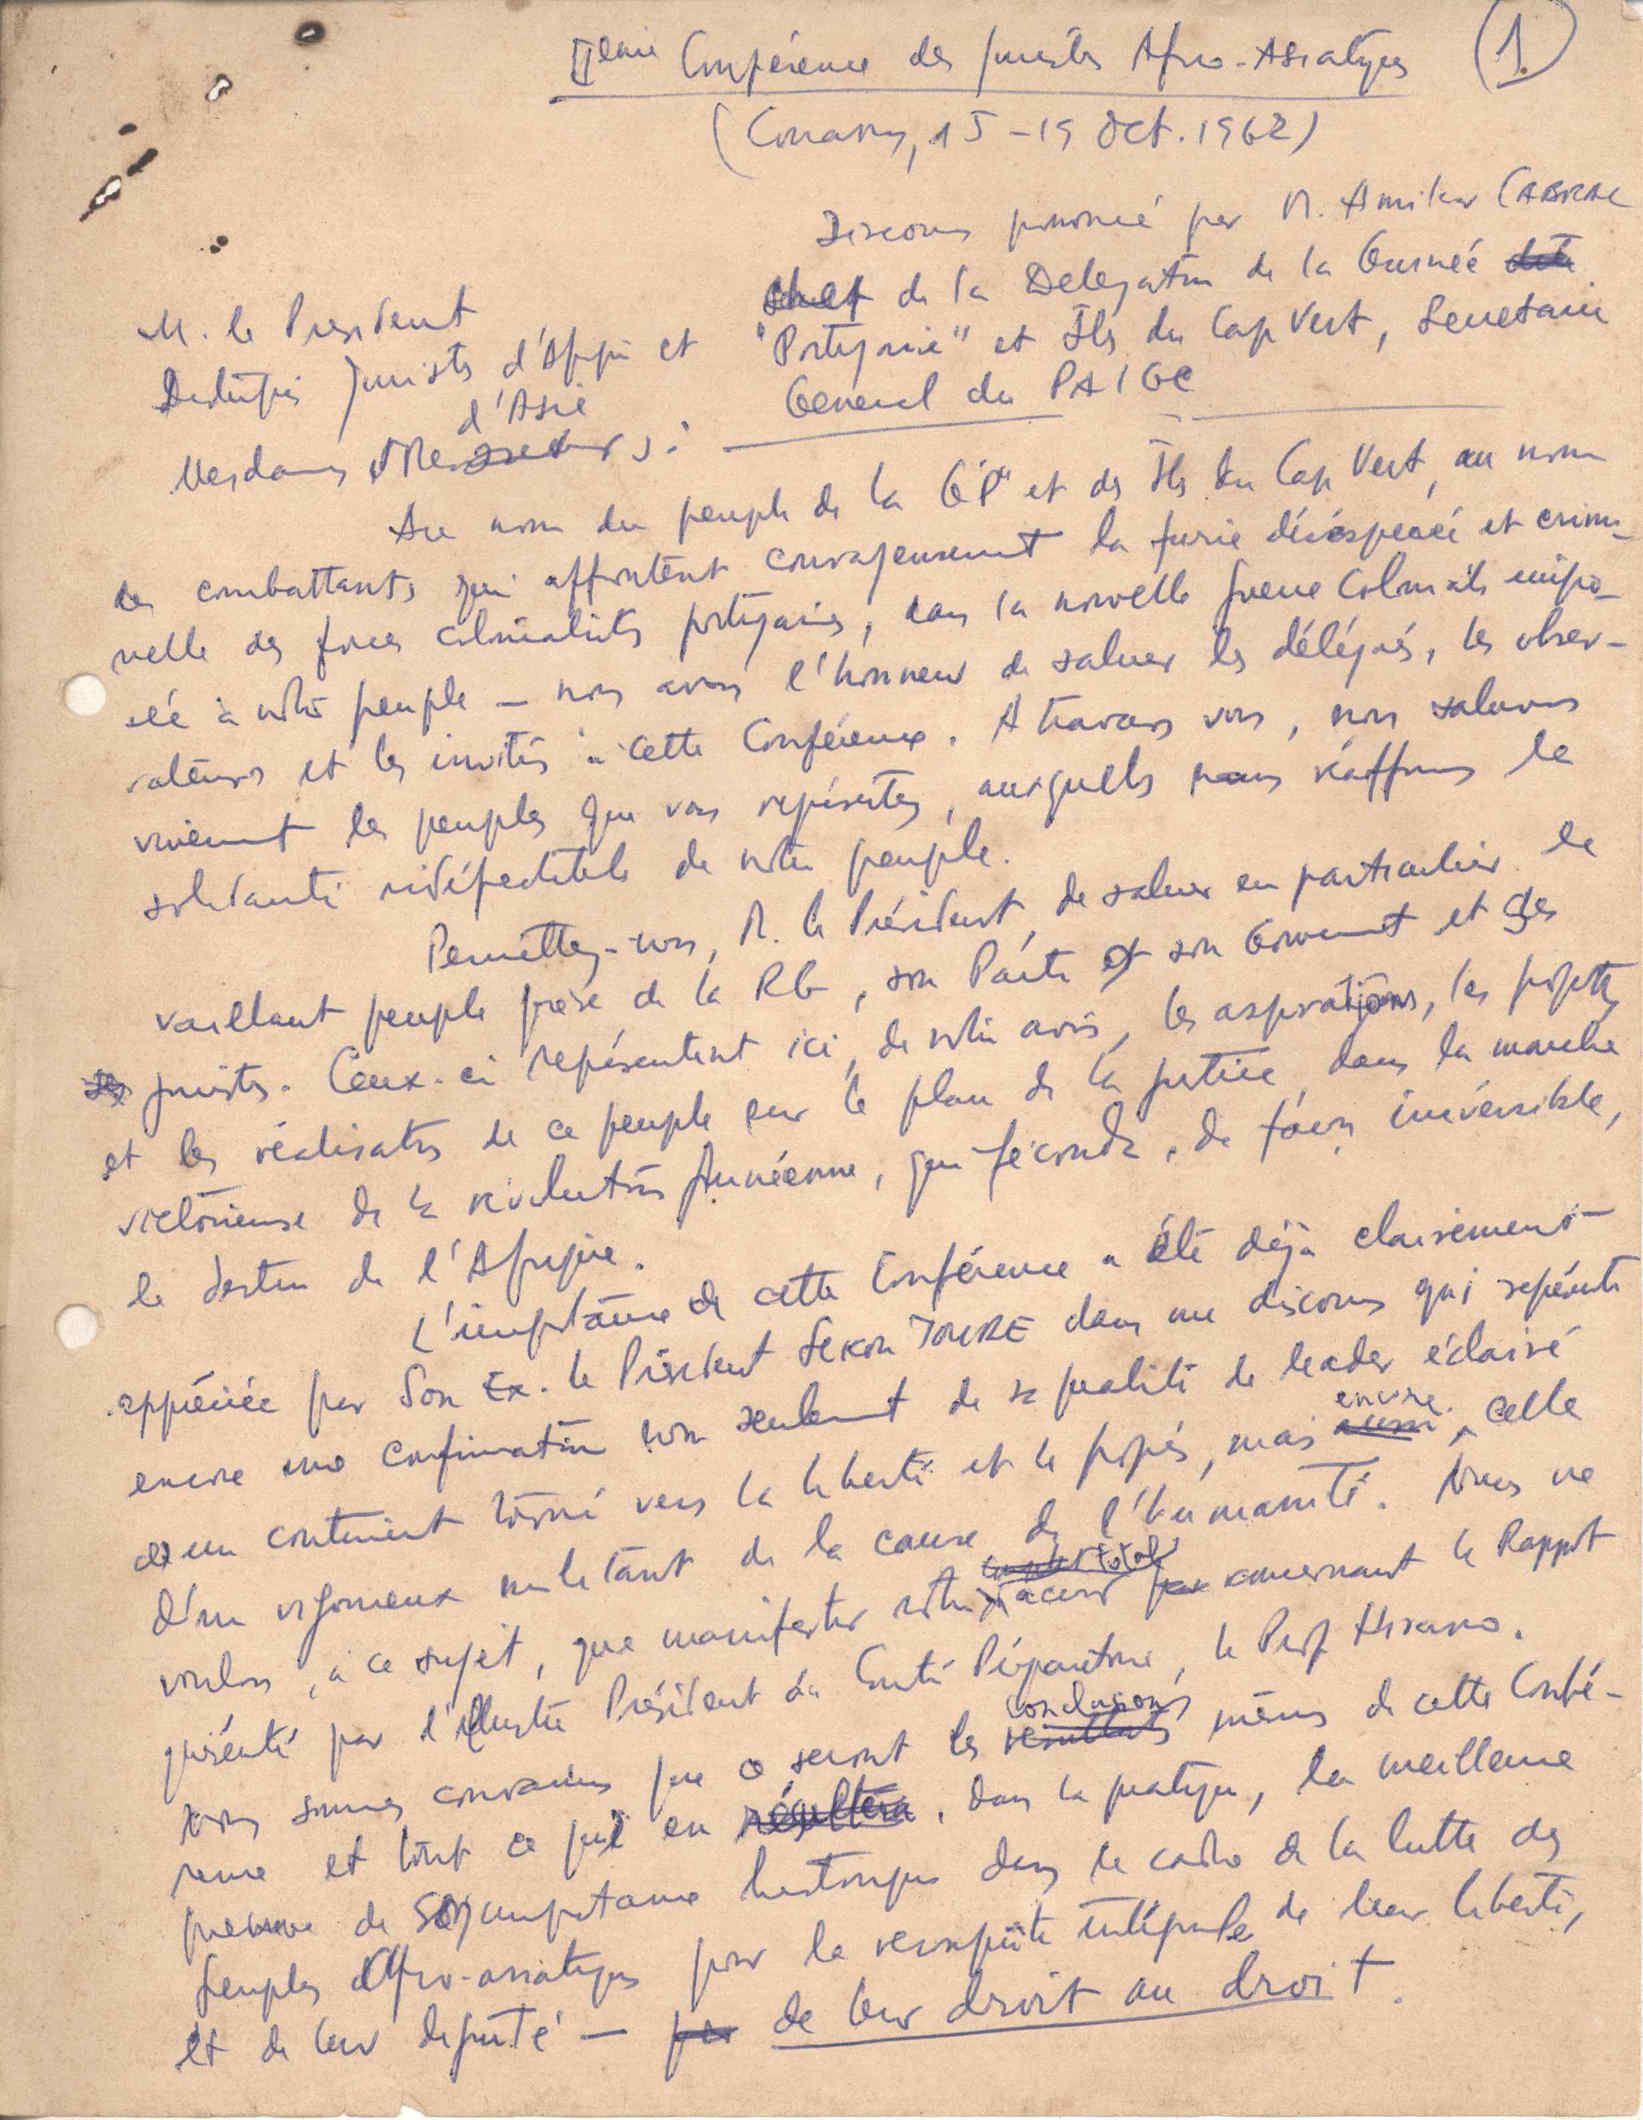 IIème Conférence des Juristes Afro-Asiatiques
1.
(Conakry, 15-19 Oct. 1962)
Discours prononcé par M. Amilcar CABRAL
chef de la Délégation de la Guinée dite
"Portugaise" et Iles du Cap Vert, Secrétaire
Général du PAIGC
M. le President
Distingués Juristes d'Afrique et
d'Asie
Mesdames, Messieurs:
Au nom du peuple de la "GP" et des Iles du Cap Vert, au nom
des combattants qui affrontent courageusement la furie désespérée et crimi-
nelle des forces colonialistes portugaises, dans la nouvelle guerre coloniale impo-
sée à notre peuple — nous avons l'honneur de saluer les délégués, les obser-
vateurs et les invités à cette Conférence. A travers vous, nous saluons
vivement les peuples que vous représentez, auxquels nous réaffirmons la
solidarité indéfectible de notre peuple.
Permettez-nous, M. le Président, de saluer en particulier le
vaillant peuple frère de la RG, son Parti et son Gouvernement et ses
ses juristes. Ceux-ci représentent ici, de notre avis, les aspirations, les projets
et les réalisations de ce peuple sur le plan de la justice, dans la marche
victorieuse de la révolution guinéenne, qui féconde, de façon irréversible,
le destin de l'Afrique.
L'importance de cette Conférence a été déjà clairement
appréciée par Son Ex. le Président Sekou TOURE dans un discours qui représente
encore une confirmation non seulement de sa qualité de leader éclairé
d'un continent tourné vers la liberté et le progrès, mais aussi encore celle
d'un vigoureux militant de la cause de l'humanité. Nous ne
voulons, à ce sujet, que manifester notre total accord concernant le Rapport
présenté par l'illustre Président du Comité Préparatoire, le Prof Hirano.
Nous sommes convaincus que ce seront les résultats conclusions mêmes de cette Confé-
rence et tout ce qui en résultera, dans la pratique, la meilleure
preuve de son importance historique dans le cadre de la lutte des
peuples afro-asiatiques pour la reconquête intégrale de leur liberté,
et de leur dignité — par de leur droit au droit.